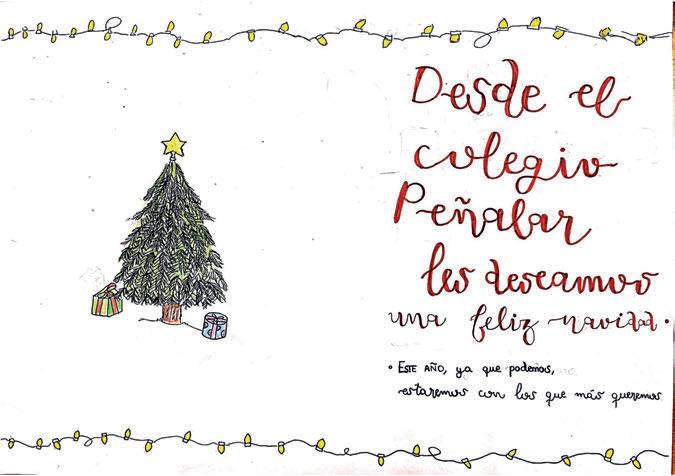 Desde el
colegio
Peñalar
les deseamos
una feliz navidad.
• ESTE AÑO, ya que podemos,
estaremos con los que más queremos